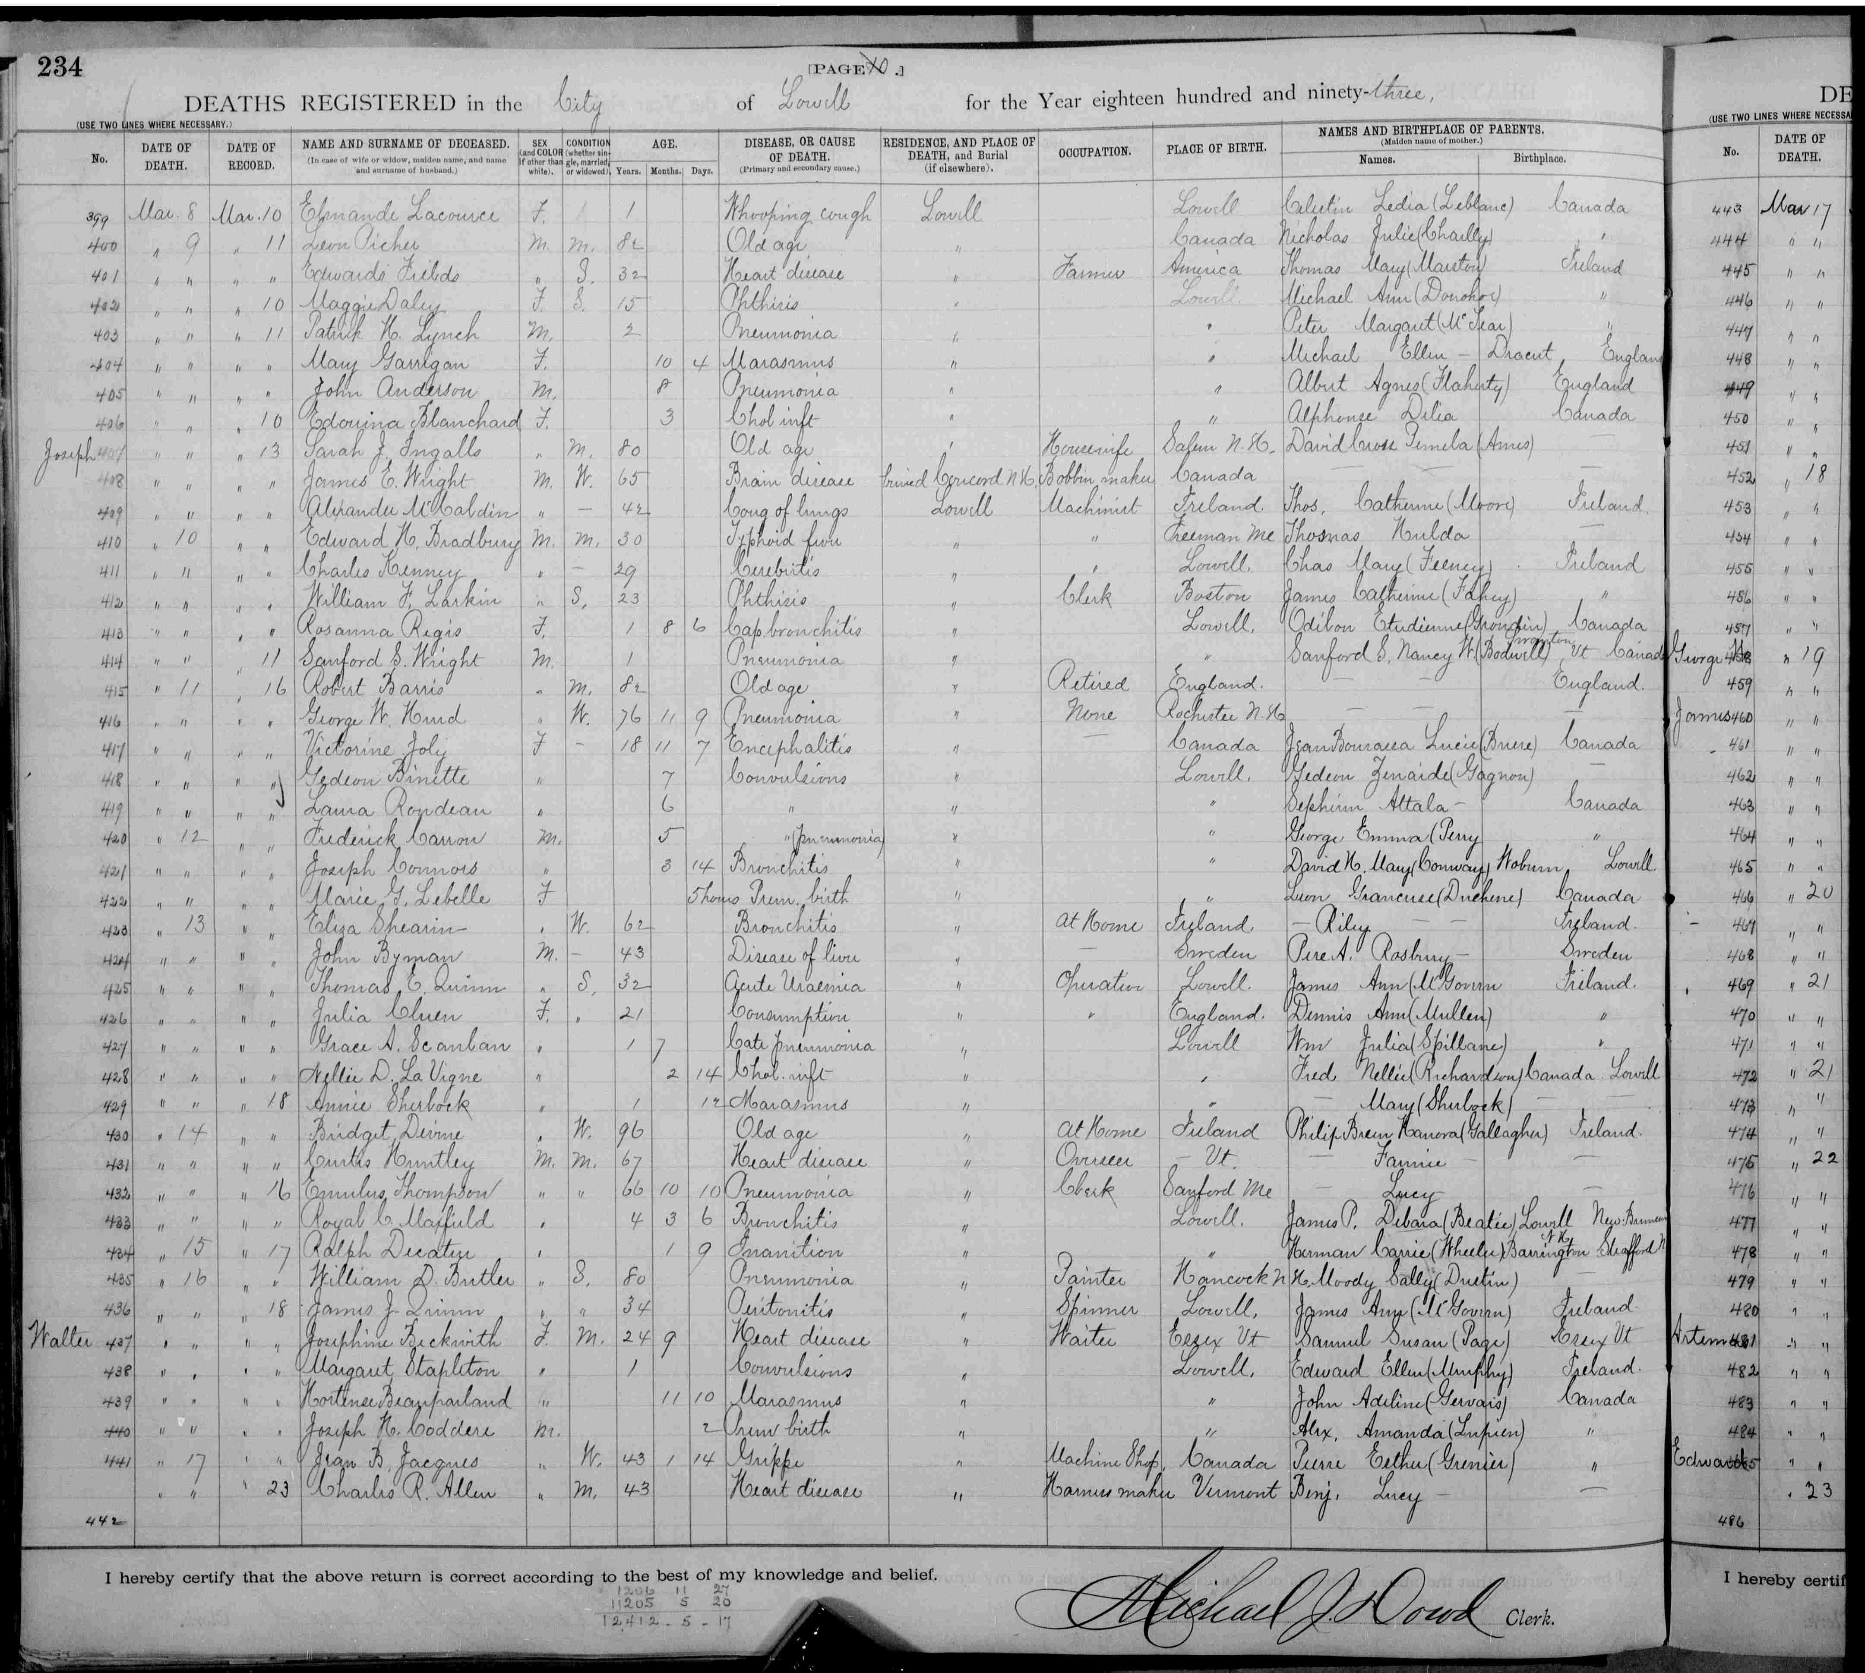 234
[PAGE 10.]
DEATHS REGISTERED in the City of Lowell for the Year eighteen hundred and ninety-three,
(USE TWO LINES WHERE NECESSARY.)
No. DATE OF DEATH. DATE OF RECORD. NAME AND SURNAME OF DECEASED. (In case of wife or widow, maiden name, and name and surname of husband.) SEX (and COLOR if other than white). CONDITION (whether single, married, or widowed). AGE. Years. Months. Days. DISEASE, OR CAUSE OF DEATH. (Primary and secondary cause.) RESIDENCE, AND PLACE OF DEATH, and Burial (if elsewhere). OCCUPATION. PLACE OF BIRTH. NAMES AND BIRTHPLACE OF PARENTS. (Maiden name of mother.) Names. Birthplace.
399 Mar. 8 Mar. 10 F. 1 Whooping cough Lowell Lowell Ledia (Leblanc) Canada
400 " 9 " 11 Leon Picher M. M. 82 Old age " Canada Nicholas Julie (Chailly) "
401 " " " " Edwards Fields " S. 32 Heart disease " Farmer America Thomas Mary (Marston) Ireland
402 " " " 10 Maggie Daley F. S. 15 Phthisis " Lowell Michael Ann (Donohoe) "
403 " " " 11 Patrick H. Lynch M. 2 Pneumonia " " Peter Margaret "
404 " " " " Mary Garrigan F. 10 4 Marasmus " " Michael Ellen – Dracut, England
405 " " " " John Anderson M. 8 Pneumonia " " Albert Agnes (Flaherty) England
406 " " " 10 Edouina Blanchard F. 3 Chol inft " " Alphonse Delia Canada
Joseph 407 " " " 13 Sarah J. Ingalls " M. 80 Old age " Housewife Salem N.H. David Cross Pemela (Ames) –
408 " " " " James E. Wright M. W. 65 Brain disease buried Concord N.H. Bobbin maker Canada – – –
409 " " " " " – 42 Cong of lungs Lowell Machinist Ireland Thos. Catherine (Moore) Ireland.
410 " 10 " " Edward H. Bradbury M. M. 30 Typhoid fever " " Freeman Me Thomas Hulda –
411 " " " " Charles Kenney " – 29 Cerebritis " " Lowell. Chas Mary (Feeney) Ireland
412 " " " " William F. Larkin " S. 23 Phthisis " Clerk Boston James Catherine (Fahey) "
413 " " " " Rosanna Regis F. 1 8 6 Cap. bronchitis " Lowell. Odibon Etudienne (Grondin) Canada
414 " " " 11 Sanford S. Wright M. 1 Pneumonia " " Sanford S. Nancy W (Bodwell) Swanton Vt Canada
415 " 11 " 16 Robert Barris " M. 82 Old age " Retired England. – – England.
416 " " " " George W. Hurd " W. 76 11 9 Pneumonia " None Rochester N.H. – – –
417 " " " " Victorine Joly F – 18 11 7 Encephalitis " – Canada Jean Bourassa Lucie (Briere) Canada
418 " " " " Gedeon Binette " 7 Convulsions " Lowell. Gedeon Zenaide (Gagnon) –
419 " " " " Laura Rondeau " 6 " " " Sephirin Attala – Canada
420 " 12 " " Frederick Carron M. 5 " (pneumonia) " " George Emma (Perry "
421 " " " " Joseph Connors " 3 14 Bronchitis " " David H. Mary (Conway) Woburn Lowell
422 " " " " Marie G. Lebelle F 5 hours Prem. birth " " Leon (Duchene) Canada
423 " 13 " " Eliza Shearin – W. 62 Bronchitis " At Home Ireland – Riley – – Ireland.
424 " " " " John Byman M. – 43 Disease of liver " – Sweden Pere A. Rosbury – Sweden
425 " " " " Thomas E. Quinn " S. 32 Acute Uraemia " Operative Lowell. James Ann (McGovern Ireland.
426 " " " " Julia Cluen F. " 21 Consumption " " England. Dennis Ann (Mullen) "
427 " " " " Grace A. Scanlan " 1 7 Cate pneumonia " Lowell Wm Julia (Spillane) "
428 " " " " Nellie D. La Vigne " 2 14 Chol. inft " " Fred Nellie (Richardson) Canada Lowell
429 " " " 18 Annie Sherlock " 1 12 Marasmus " " – Mary (Sherlock) – –
430 " 14 " " Bridget Devine " W. 96 Old age " At Home Ireland Philip Breen Hanora (Gallagher) Ireland.
431 " " " " Curtis Huntley M. M. 67 Heart disease " Overseer – Vt. – Fannie – –
432 " " " 16 Thompson " " 66 10 10 Pneumonia " Clerk Sanford Me – Lucy –
433 " " " " Royal C. Maxfield " 4 3 6 Bronchitis " Lowell. James P. Debara (Beatie) Lowell New Brunswic
434 " 15 " 17 Ralph Decatur " 1 9 Inanition " " Herman Carrie (Wheeler) Barrington N.H. Strafford N
435 " 16 " " William D. Butler " S. 80 Pneumonia " Painter Hancock N.H. Moody Sally (Dustin) –
436 " " " 18 James J Quinn " " 34 Peritonitis " Spinner Lowell. James Ann (McGovern) Ireland.
Walter 437 " " " " Josephine Beckwith F. M. 24 9 Heart disease " Waiter Essex Vt Samuel Susan (Page) Essex Vt
438 " " " " Margaret Stapleton " 1 Convulsions " Lowell. Edward Ellen (Murphy) Ireland.
439 " " " " Hortense Beauparland " 11 10 Marasmus " " John Adeline (Gervais) Canada
440 " " " " Joseph H. Coddere M. 2 Prem birth " " Alex. Amanda (Lupien) "
441 " 17 " " Jean B. Jacques " W. 43 1 14 Grippe " Machine Shop, Canada Pierre Esther (Grenier) "
" " " 23 Charles R. Allen " M. 43 Heart disease " Harness maker Vermont Benj. Lucy – –
442
I hereby certify that the above return is correct according to the best of my knowledge and belief.
1206 11 27
11205 5 20
12,412 - 5 - 17
Michael J. Dowd Clerk.
DE
(USE TWO LINES WHERE NECESSA
No. DATE OF DEATH.
443 Mar 17
444 " "
445 " "
446 " "
447 " "
448 " "
449 " "
450 " "
451 " "
452 " 18
453 " "
454 " "
455 " "
456 " "
457 " "
George 458 " 19
459 " "
James 460 " "
461 " "
462 " "
463 " "
464 " "
465 " "
466 " 20
467 " "
468 " "
469 " 21
470 " "
471 " "
472 " 21
473 " "
474 " "
475 " 22
476 " "
477 " "
478 " "
479 " "
480 " "
Artemas 481 " "
482 " "
483 " "
484 " "
Edward 485 " "
" 23
486
I hereby certif